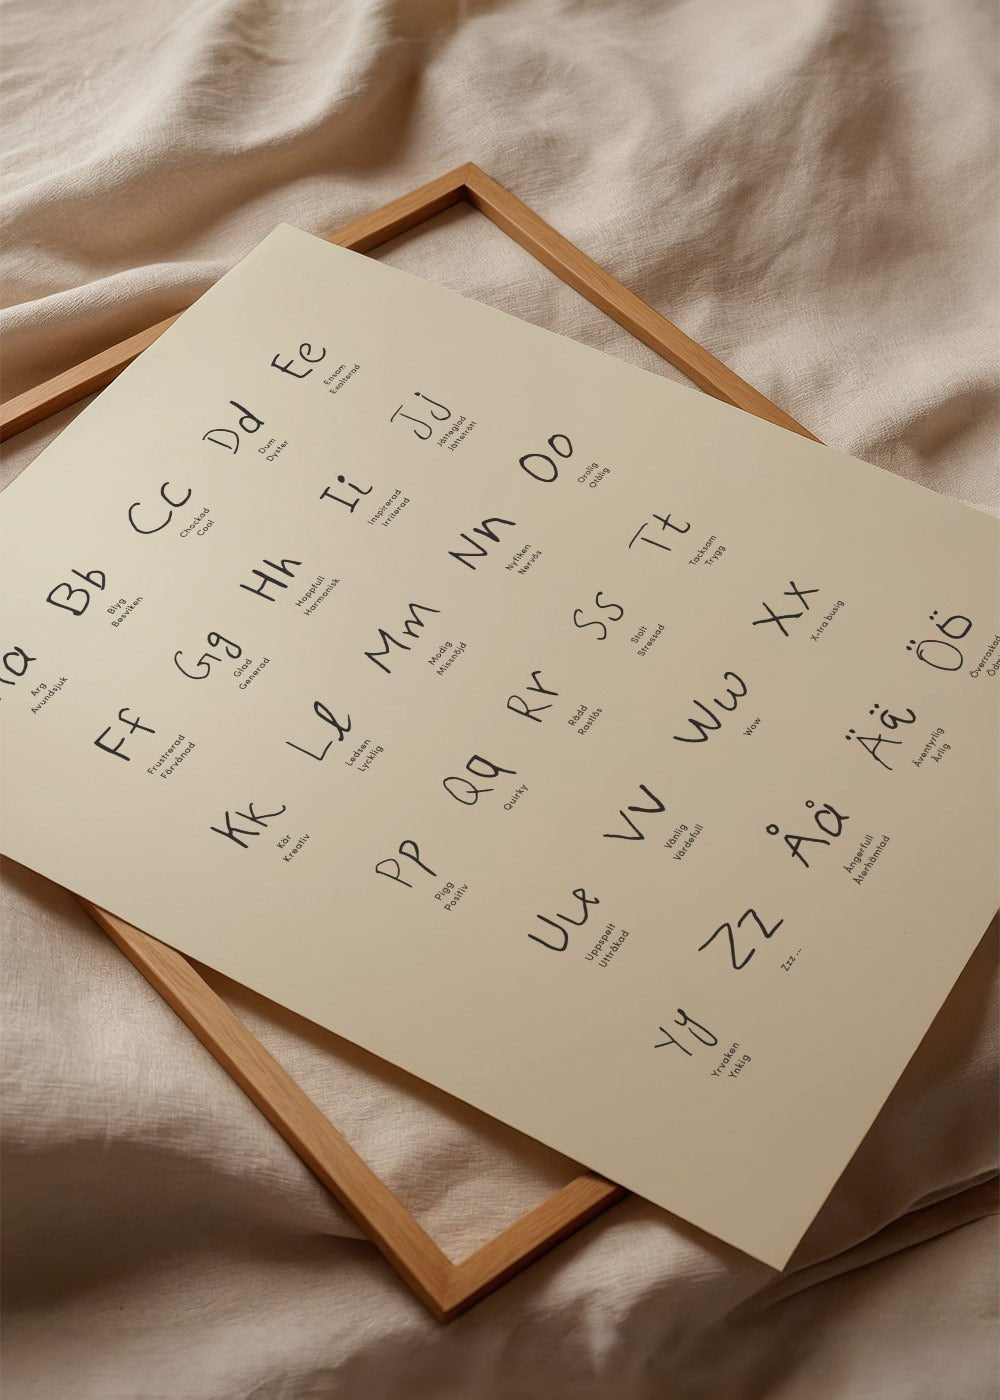 Aa
Arg
Avundsjuk
Bb
Blyg
Besviken
Cc
Chockad
Cool
Dd
Dum
Dyster
Ee
Ensam
Exalterad
Ff
Frustrerad
Förvånad
Gg
Glad
Generad
Hh
Hoppfull
Harmonisk
Ii
Inspirerad
Irriterad
Jj
Jätteglad
Jättetrött
Kk
Kär
Kreativ
Ll
Ledsen
Lycklig
Mm
Modig
Missnöjd
Nn
Nyfiken
Nervös
Oo
Orolig
Otålig
Pp
Pigg
Positiv
Qq
Quirky
Rr
Rädd
Rastlös
Ss
Stolt
Stressad
Tt
Tacksam
Trygg
Uu
Uppspelt
Uttråkad
Vv
Vänlig
Värdefull
Ww
Wow
Xx
X-tra busig
Yy
Yrvaken
Ynkig
Zz
Zzz...
Åå
Ångerfull
Återhämtad
Ää
Äventyrlig
Ärlig
Öö